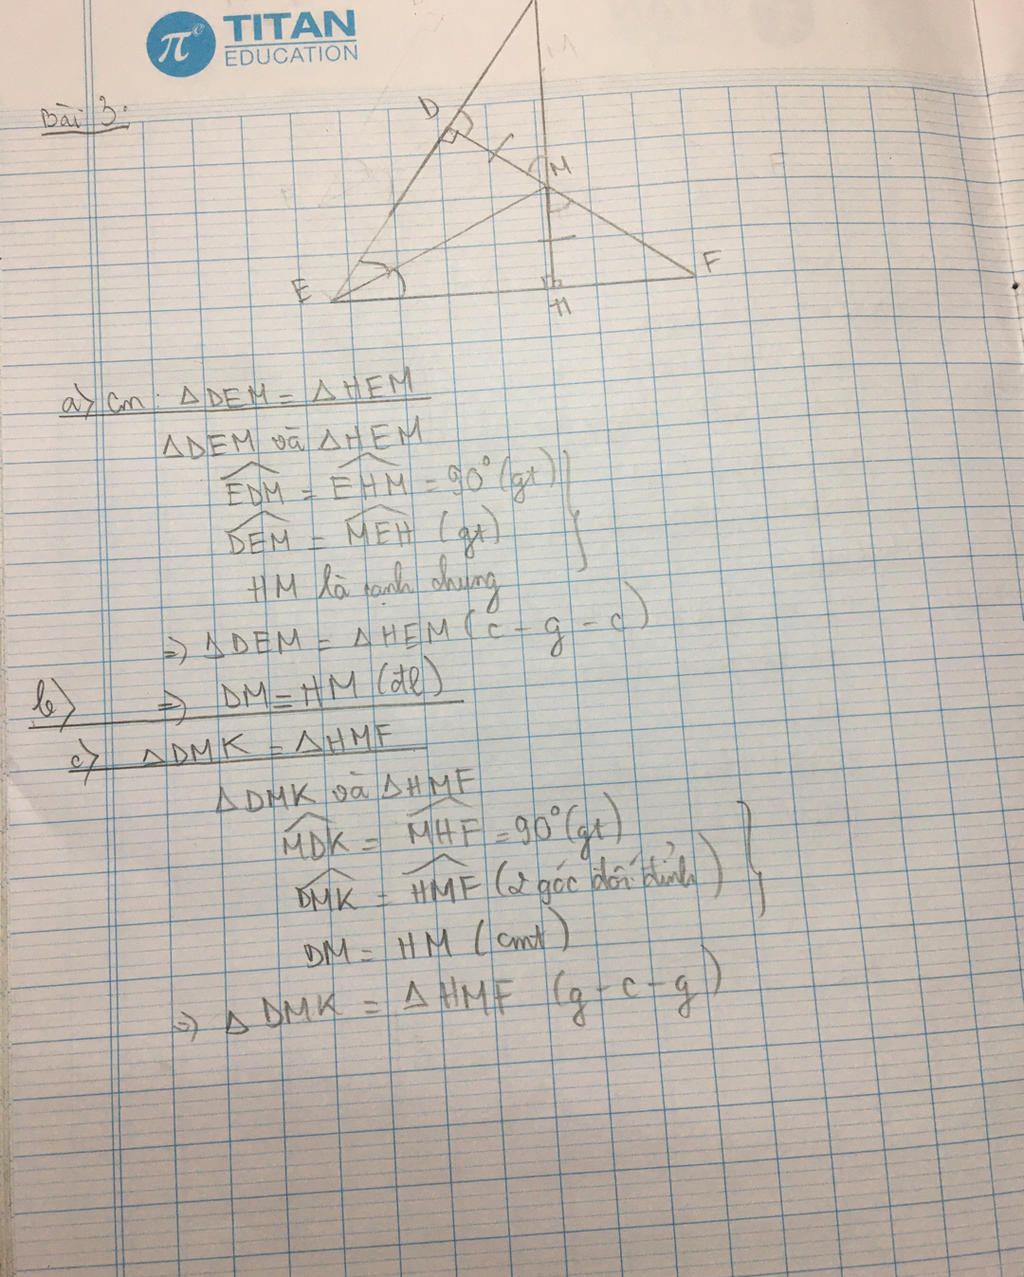 π e TITAN
EDUCATION
Bài 3:
D
M
E
F
H
a) Cm: ΔDEM = ΔHEM
ΔDEM và ΔHEM
EDM = EHM = 90° (gt)
DEM = MEH (gt)
HM là cạnh chung
=> ΔDEM = ΔHEM (c - g - c)
b) => DM = HM (đl)
c) ΔDMK = ΔHMF
ΔDMK và ΔHMF
MDK = MHF = 90° (gt)
DMK = HMF (2 góc đối đỉnh)
DM = HM (cmt)
=> Δ DMK = Δ HMF (g - c - g)